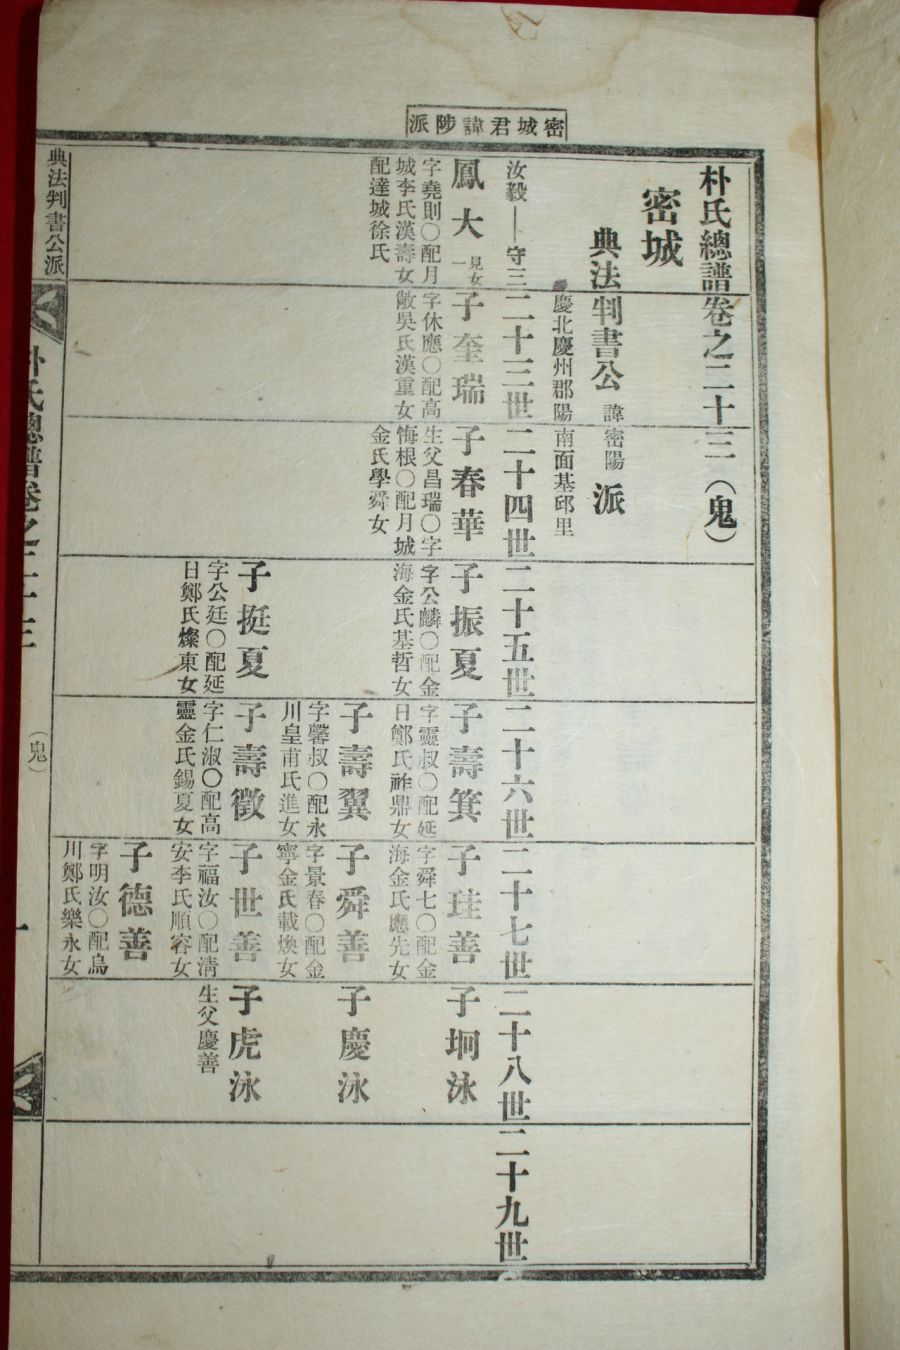 密城君諱陟派
朴氏總譜卷之二十三（鬼）
密城
典法判書公 諱密陽 派
慶北慶州郡陽南面基邱里
汝毅——守三
二十三世
二十四世
二十五世
二十六世
二十七世
二十八世
二十九世
鳳大 一見女
字堯則○配月
城李氏漢壽女
配達城徐氏
子奎瑞
字休應○配高
敞吳氏漢重女
子春華
生父昌瑞○字
悔根○配月城
金氏學舜女
子振夏
字公麟○配金
海金氏基哲女
子壽箕
字靈叔○配延
日鄭氏祚鼎女
子珪善
字舜七○配金
海金氏應先女
子坰泳
子壽翼
字馨叔○配永
川皇甫氏進女
子舜善
字景春○配金
寧金氏載煥女
子慶泳
子挺夏
字公廷○配延
日鄭氏燦東女
子壽徵
字仁淑○配高
靈金氏錫夏女
子世善
字福汝○配清
安李氏順容女
子虎泳
生父慶善
子德善
字明汝○配烏
川鄭氏樂永女
典法判書公派
朴氏總譜卷之二十三
（鬼）
一